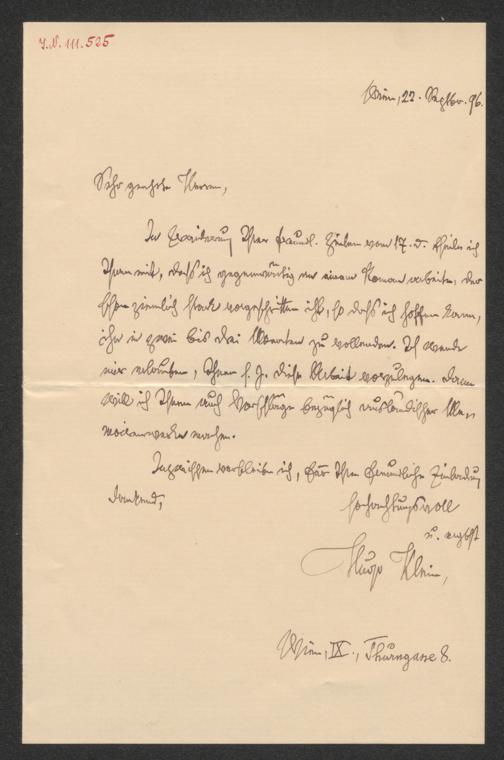 J.N. 111.525
Wien, 22. Septbr. 96.
Sehr geehrte Herren,
In Erwiderung Ihrer freundl. Zeilen vom 17. d. theile ich
Ihnen mit, dass ich gegenwärtig an einem Roman arbeite, der
schon ziemlich stark vorgeschritten ist, so dass ich hoffen kann,
ihn in zwei bis drei Monaten zu vollenden. Ich werde
mir erlauben, Ihnen s. Z. diese Arbeit vorzulegen. Dann
will ich Ihnen auch Vorschläge bezüglich ausländischer
machen.
Inzwischen verbleibe ich, für Ihre freundliche Einladung
dankend,
hochachtungsvoll
u. ergbst
Hugo Klein,
Wien, IX., Thurngasse 8.